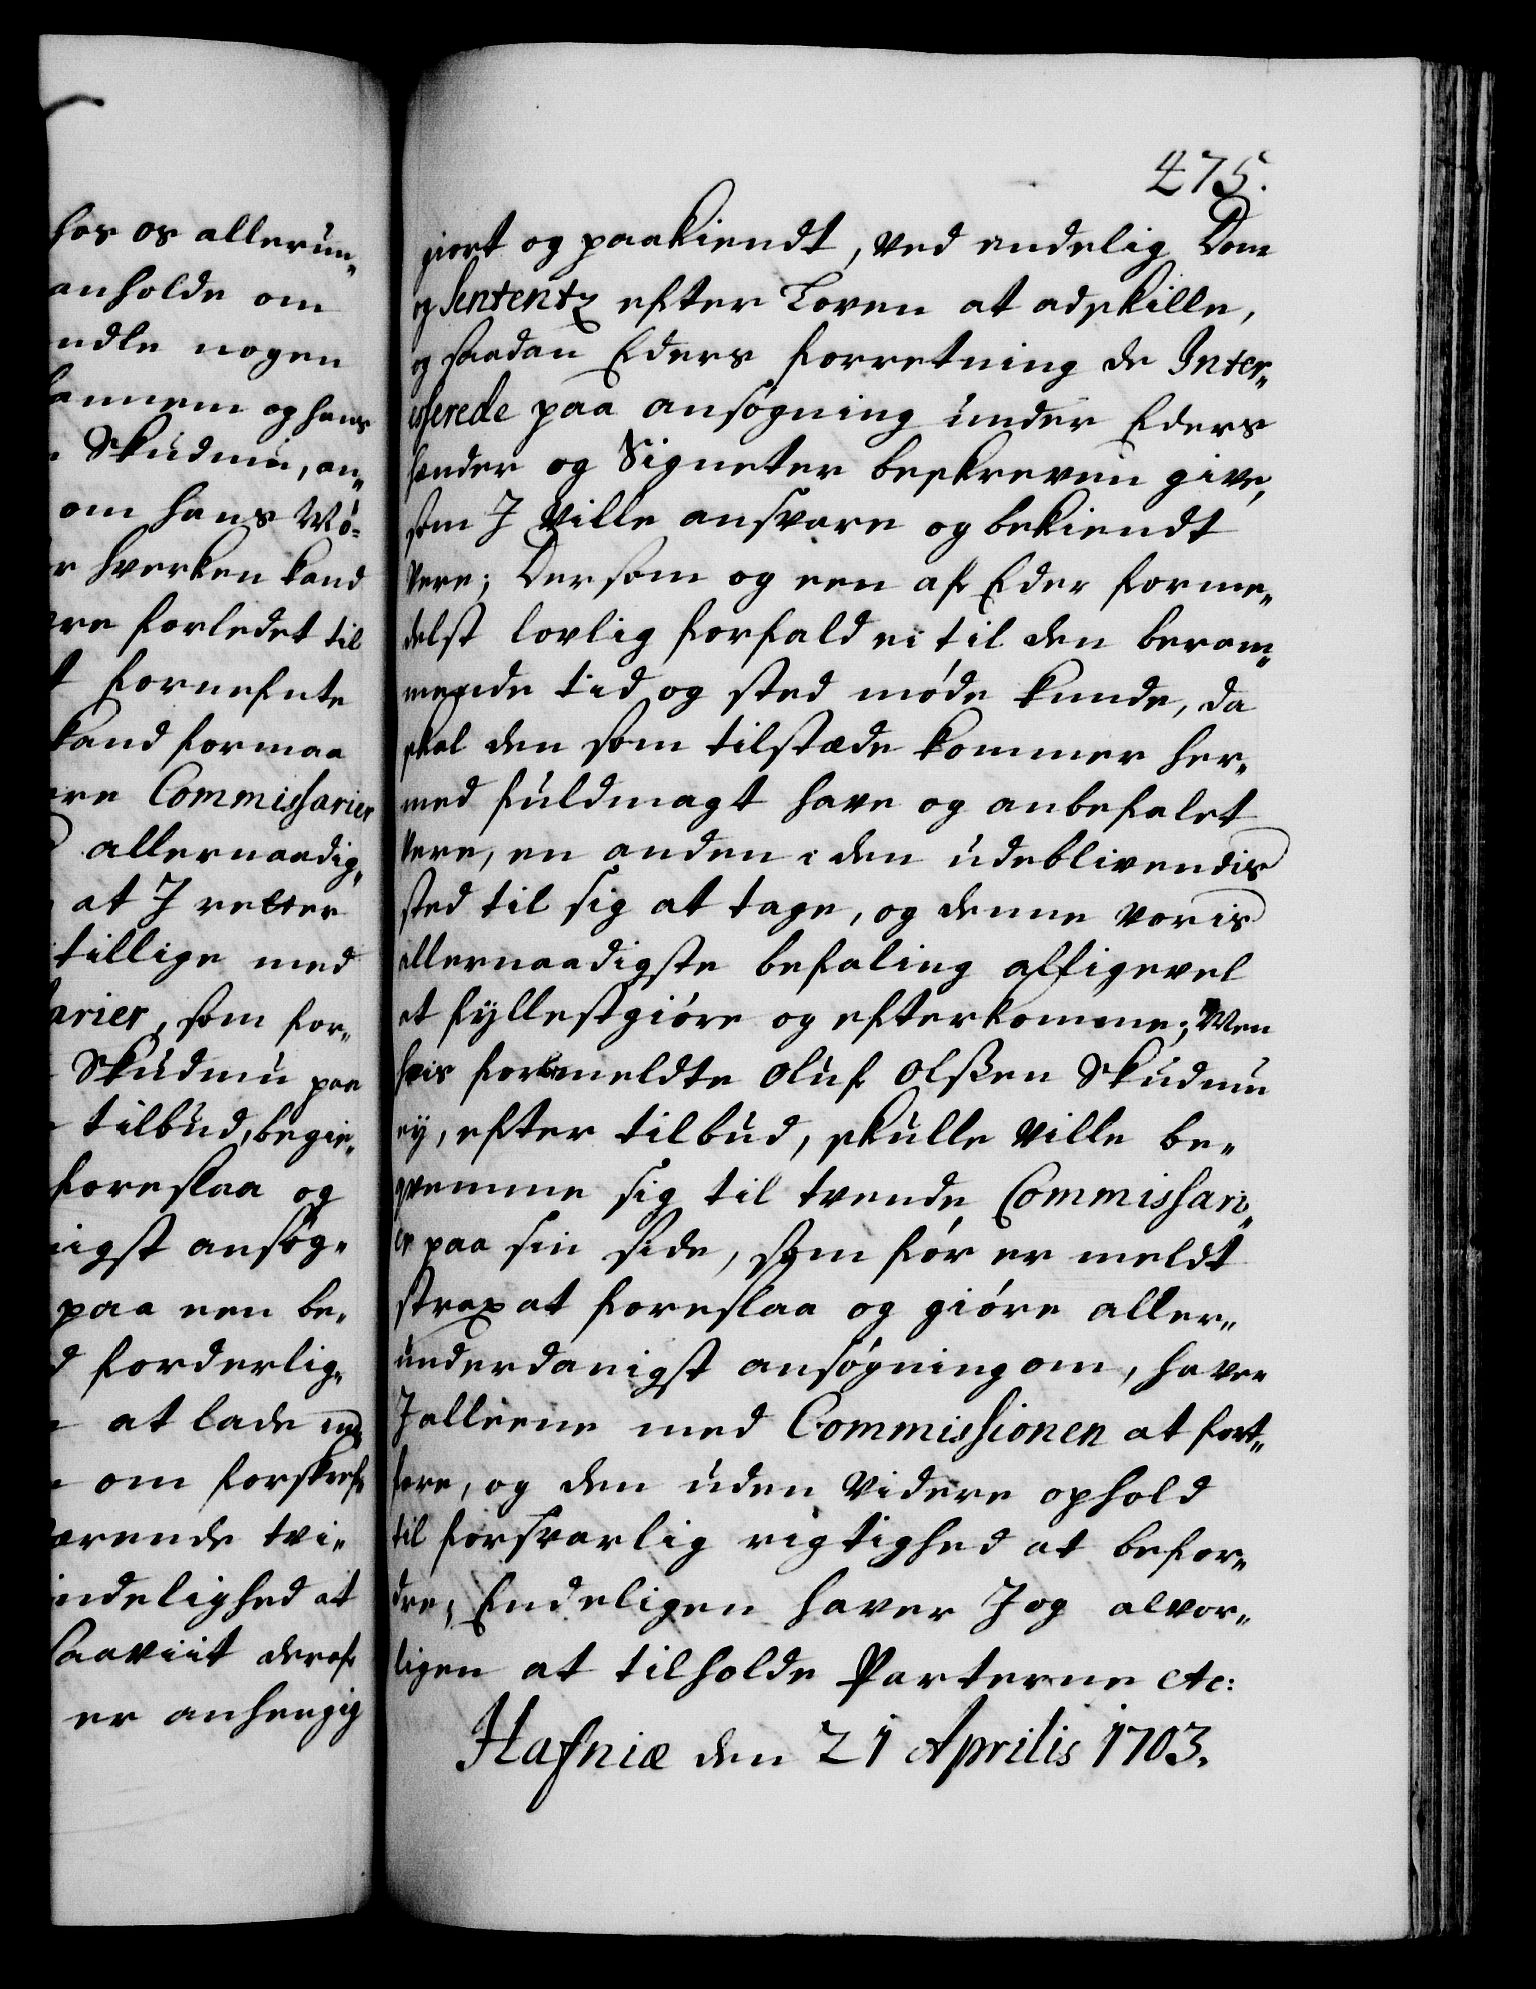 hos os allerun„
anholde om
ndle nogen
hannem og hans
Skudmu, an„
om hans Wó„
hverken kand
re forledet til
fornefnte
kand formaa
Commissarier
allernaadig„
at J retter
tillige med
arier, som for„
Skudmu paa
tilbud, begie„
foreslaa og
nigst ansøg„
paa een be„
forderlig„
at lade
om forskref„
ærende tvi„
indelighed at
saaviit deraf
er anhengig
475.
giort og paakiendt, ved endelig Dom
og Sententz efter Loven at adskille,
og saadan Eders forretning de Inter„
esserede paa ansøgning under Eders
hænder og Signeter beskreven give,
som J ville ansvare og bekiendt
Vere; Dersom og een af Eder forme„
delst lovlig forfald ei til den beram„
mende tid og sted møde kunde, da
skal den som tilstæde kommer her„
med fuldmagt have og anbefalet
Vere, en anden i den udeblivendis
sted til sig at tage, og denne voris
allernaadigste befaling alligevel
at fyllestgióre og efterkomme; Men
hvis forbemeldte Oluf Olssen Skudmu
ey, efter tilbud, skulle ville be„
qvemme sig til tvende Commissari„
er paa sin side, som fór er meldt
strax at foreslaa og gióre aller„
underdanigst ansógning om, haver
J alleene med Commissionen at fort„
fare, og den uden videre ophold
til forsvarlig rigtighed at befor„
dre, Endeligen haver J og alvor„
ligen at tilholde Parterne etc:
Hafniæ den 21 Aprilis 1703.